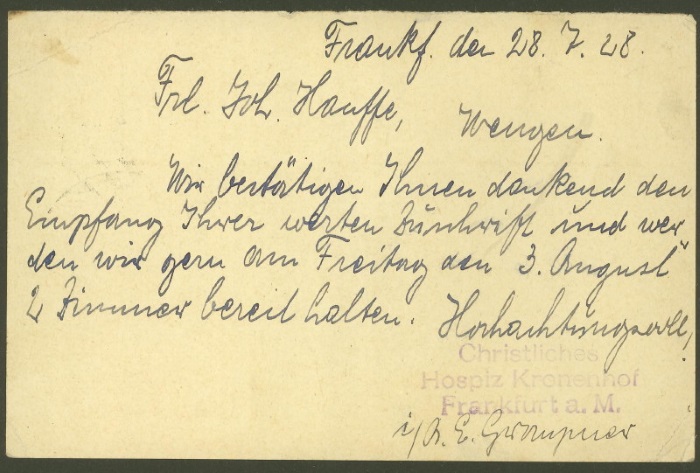 Frankf. den 28. 7. 28.
Frl. Joh. Hauffe,
Wengen.
Wir bestätigen Ihnen dankend den
Empfang Ihrer werten Zuschrift und wer
den wir gern am Freitag den 3. August
2 Zimmer bereit halten. Hochachtungsvoll,
Christliches
Hospiz Kronenhof
Frankfurt a. M.
i/A. E. Graupner